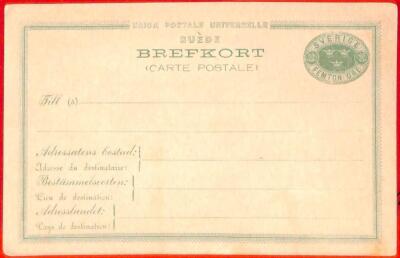 UNION POSTALE UNIVERSELLE
SUÈDE
BREFKORT
(CARTE POSTALE)
SVERIGE
FEMTON ÖRE
Till (à)
Adressatens bostad:
Adresse du destinataire:
Bestämmelseorten:
Lieu de destination:
Adresslandet:
Pays de destination: